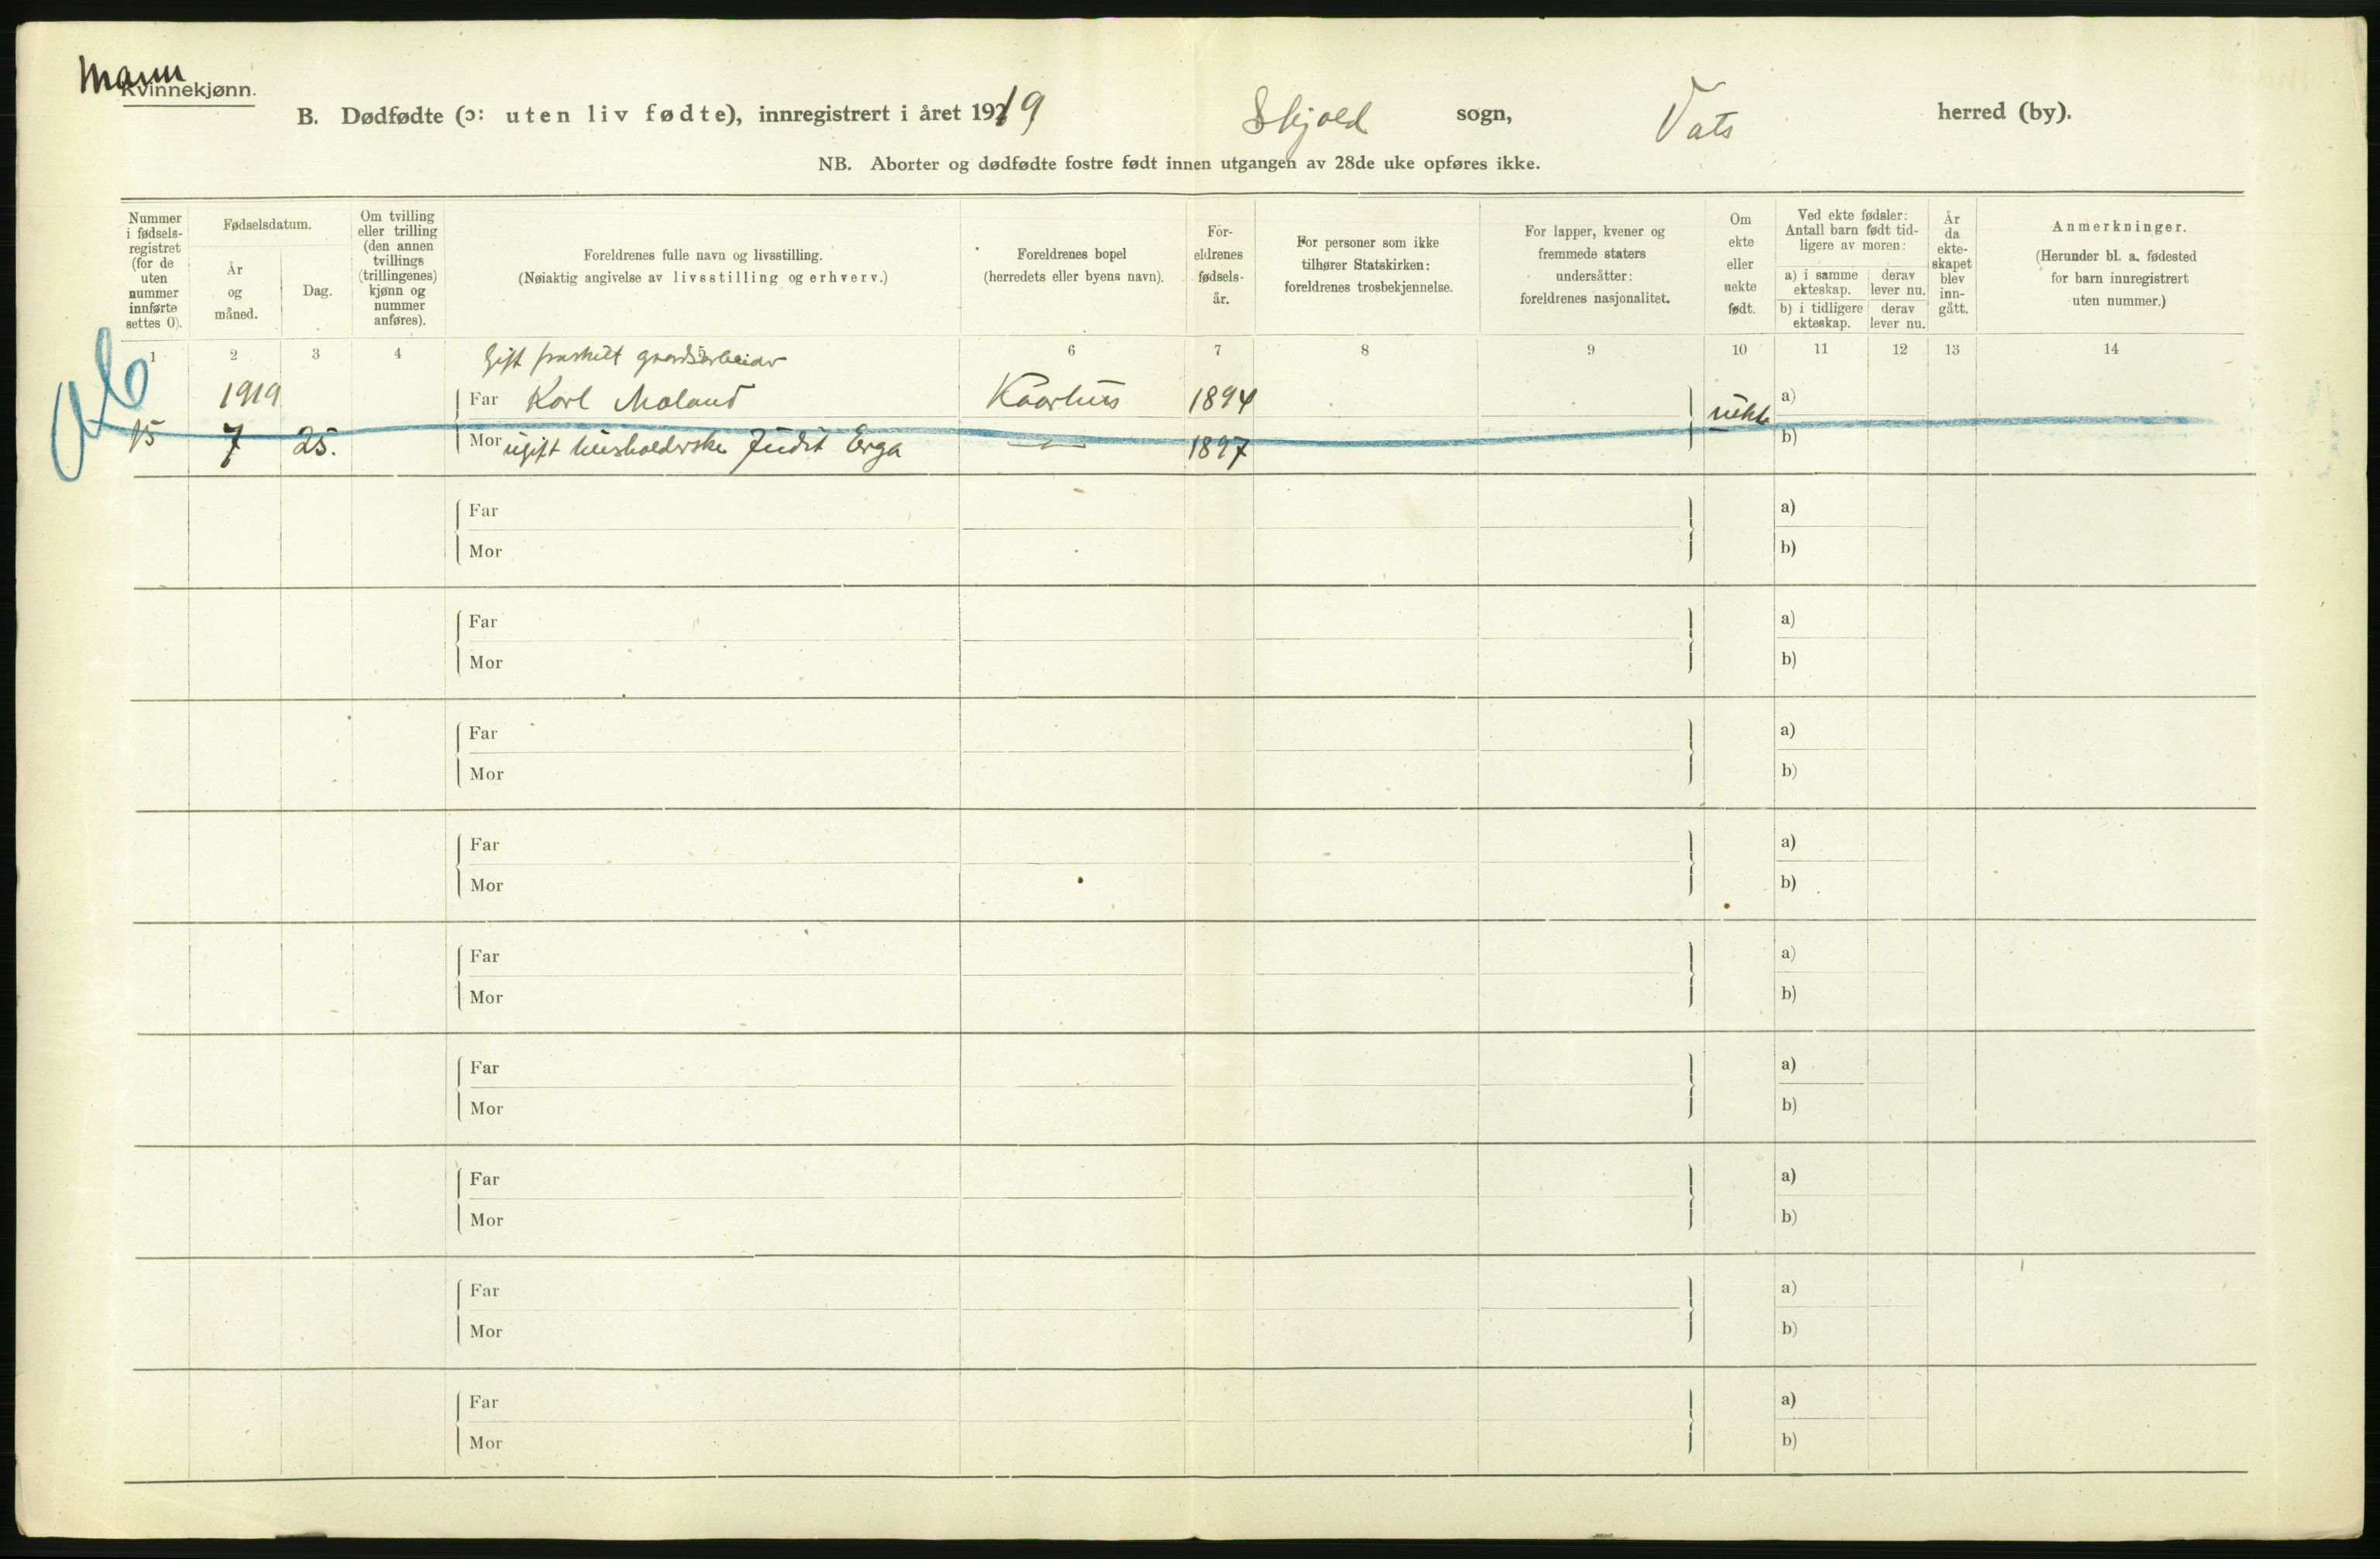 Mann
Kvinnekjønn.
B. Dødfødte (ɔ: uten liv fødte), innregistrert i året 1919 Skjold sogn, Vats herred (by).
NB. Aborter og dødfødte fostre født innen utgangen av 28de uke opføres ikke.
Nummer i fødselsregistret (for de uten nummer innførte settes 0).
Fødselsdatum.
År og måned.
Dag.
Om tvilling eller trilling (den annen tvillings (trillingenes) kjønn og nummer anføres).
Foreldrenes fulle navn og livsstilling.
(Nøiaktig angivelse av livsstilling og erhverv.)
Foreldrenes bopel
(herredets eller byens navn).
Foreldrenes fødselsår.
For personer som ikke tilhører Statskirken: foreldrenes trosbekjennelse.
For lapper, kvener og fremmede staters undersåtter: foreldrenes nasjonalitet.
Om ekte eller uekte født.
Ved ekte fødsler: Antall barn født tidligere av moren:
a) i samme ekteskap.
derav lever nu.
b) i tidligere ekteskap.
derav lever nu.
År da ekteskapet blev inngått.
Anmerkninger.
(Herunder bl. a. fødested for barn innregistrert uten nummer.)
1 2 3 4 6 7 8 9 10 11 12 13 14
Gift fraskilt gaardsarbeider
1919 Far Karl Moland Kaarhus 1894 uekte a)
15 7 25. Mor ugift husholderske Judit Erga — " — 1897 b)
Far a)
Mor b)
Far a)
Mor b)
Far a)
Mor b)
Far a)
Mor b)
Far a)
Mor b)
Far a)
Mor b)
Far a)
Mor b)
Far a)
Mor b)
Far a)
Mor b)